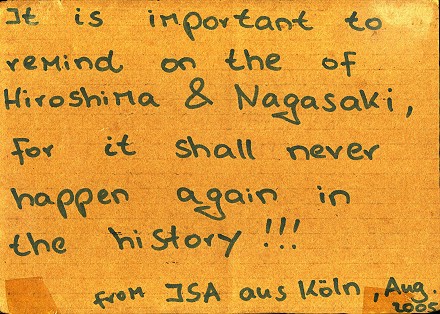 It is important to
remind on the of
Hiroshima & Nagasaki,
for it shall never
happen again in
the history !!!
from ISA aus Köln, Aug.
2005